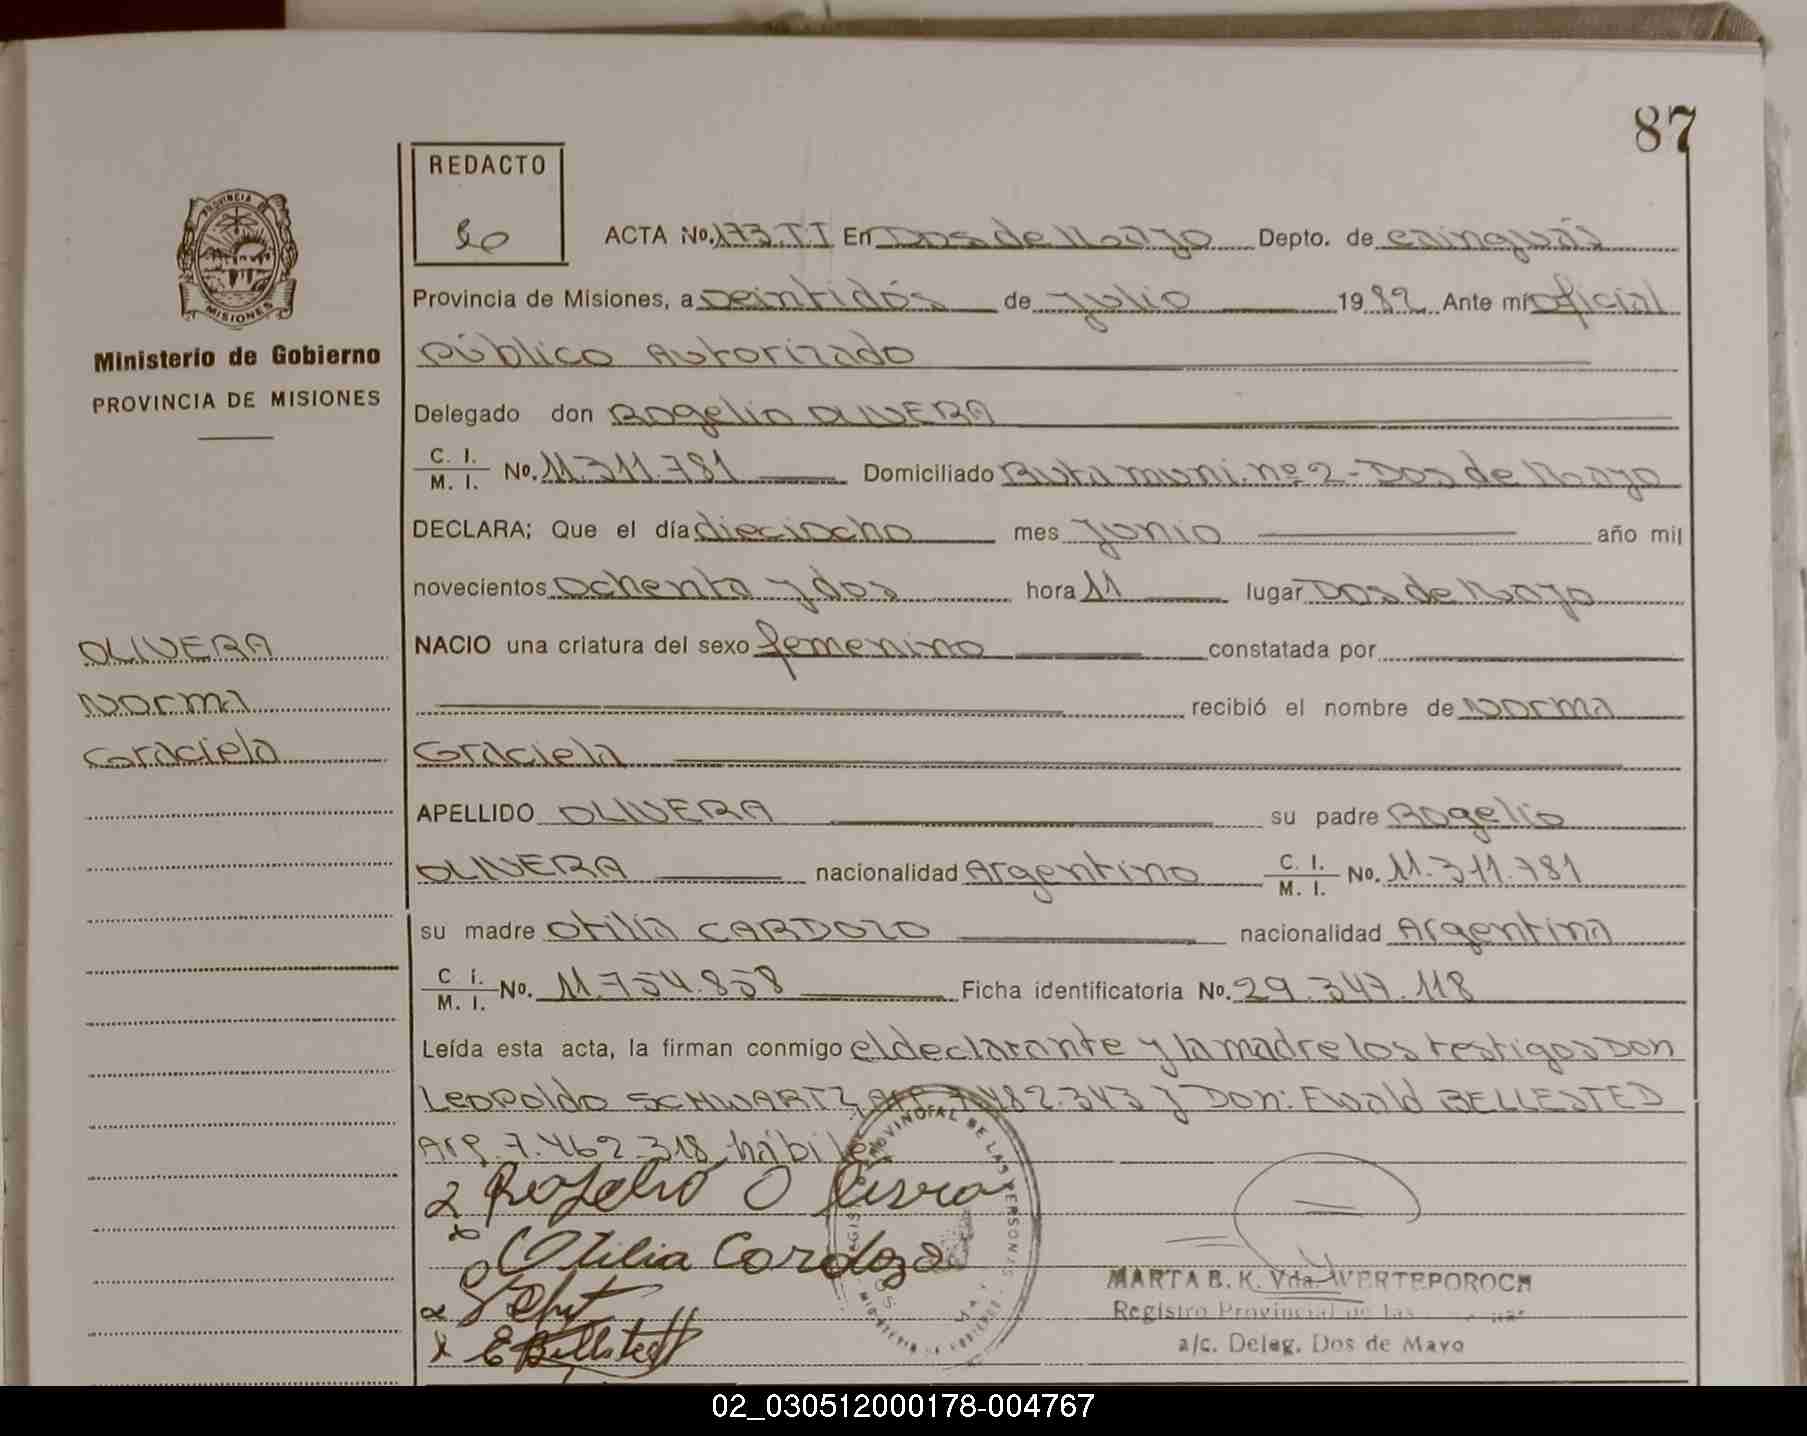 87
REDACTO
PROVINCIA DE
MISIONES
Ministerio de Gobierno
PROVINCIA DE MISIONES
ACTA No. 173.TI En Dos de Mayo Depto. de Cainguás
Provincia de Misiones, a Veintidós de Julio 1982 Ante mí Oficial
Público Autorizado
Delegado don Rogelio OLIVERA
C. I. / M. I. No. 11.311.781 Domiciliado Ruta muni. nº 2 - Dos de Mayo
DECLARA; Que el día dieciocho mes Junio año mil
novecientos Ochenta y dos hora 11 lugar Dos de Mayo
NACIO una criatura del sexo femenino constatada por
recibió el nombre de Norma
Graciela
OLIVERA
Norma
Graciela
APELLIDO OLIVERA su padre Rogelio
OLIVERA nacionalidad Argentino C. I. / M. I. No. 11.311.781
su madre Otilia CARDOZO nacionalidad Argentina
C. I. / M. I. No. 11.754.858 Ficha identificatoria No. 29.347.118
Leída esta acta, la firman conmigo el declarante y la madre los testigos Don
Leopoldo SCHWARTZ, Arp 7.482.343 y Don: Ewald BELLESTED
Arp. 7.462.318 hábiles
Rogelio Olivera
Otilia Cardozo
E Bellstedt
MARTA B. K. Vda. WERTEPOROCH
Registro Provincial de las
a/c. Deleg. Dos de Mayo
02_030512000178-004767